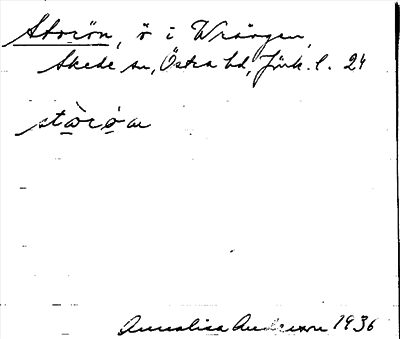 Storön, ö i Wrången,
Skede sn, Östra hd, Jönk. l. 24
stòrö̀n
Annalisa Andersson 1936